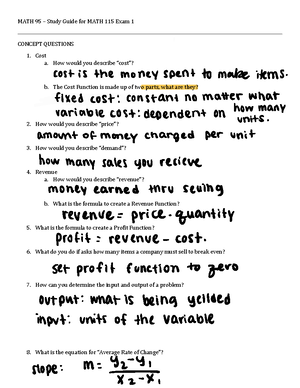 MATH 95 – Study Guide for MATH 115 Exam 1
CONCEPT QUESTIONS
1. Cost
a. How would you describe "cost"?
cost is the money spent to make items.
b. The Cost Function is made up of two parts, what are they?
fixed cost: constant no matter what
variable cost: dependent on how many
units.
2. How would you describe "price"?
amount of money charged per unit
3. How would you describe "demand"?
how many sales you recieve
4. Revenue
a. How would you describe "revenue"?
money earned thru selling
b. What is the formula to create a Revenue Function?
revenue = price · quantity
5. What is the formula to create a Profit Function?
profit = revenue - cost.
6. What do you do if asks how many items a company must sell to break even?
set profit function to zero
7. How can you determine the input and output of a problem?
output: what is being yeilded
input: units of the variable
8. What is the equation for "Average Rate of Change"?
slope: m = y₂-y₁
x₂-x₁